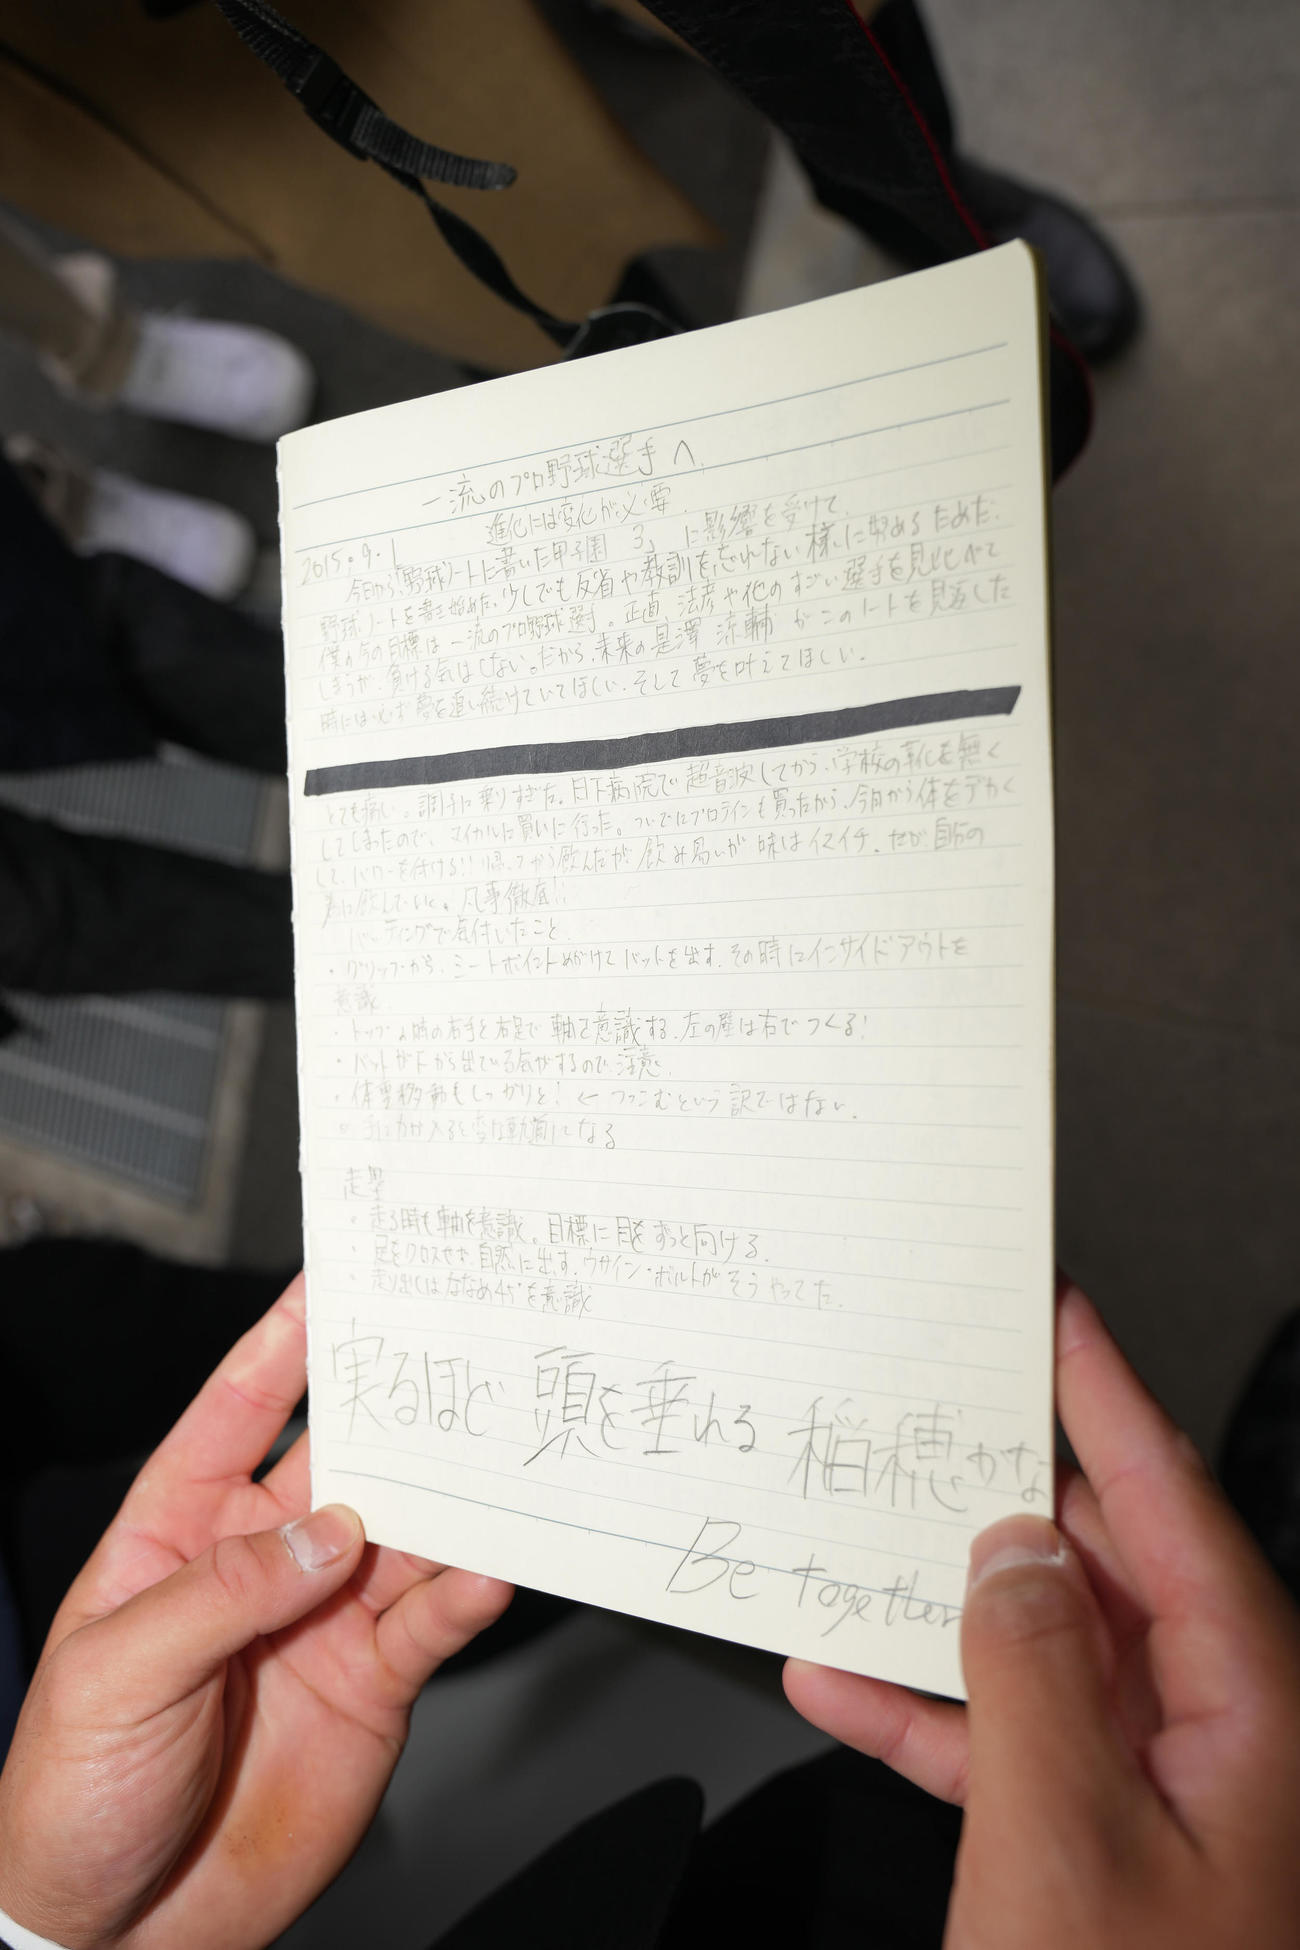 一流のプロ野球選手へ.
進化には変化が必要.
2015.9.1
今日から、「野球ノートに書いた甲子園 3」に影響を受けて.
野球ノートを書き始めた。少しでも反省や教訓を忘れない様に努めるためだ.
僕の今の目標は一流のプロ野球選手。正直、法彦や他のすごい選手を見比べて
しまうが、負ける気はしない。だから、未来の是澤 涼輔 がこのノートを見返した
時には必ず夢を追い続けていてほしい.そして夢を叶えてほしい.
とても痛い。調子に乗りすぎた。日下病院で超音波してから、学校の靴を無く
してしまったので、マイカルに買いに行った。ついでにプロテインも買ったから、今日から体をデカく
して、パワーを付ける!!帰ってから飲んだが飲み易いが味はイマイチ.だが自分の
為に飲んでいく。凡事徹底!!
バッティングで気付いたこと.
・グリップから、ミートポイントめがけてバットを出す.その時にインサイドアウトを
意識.
・トップの時の右手と右足で軸を意識する.左の壁は右でつくる!
・バットが下から出ている気がするので注意.
・体重移動もしっかりと!←つっこむという訳ではない.
・手に力が入ると変な軌道になる
走塁
・走る時も軸を意識。目標に目をずっと向ける.
・足をクロスせず、自然に出す.ウサイン・ボルトがそうやってた.
・走り出しはななめ45°を意識
実るほど 頭を垂れる 稲穂かな
Be together